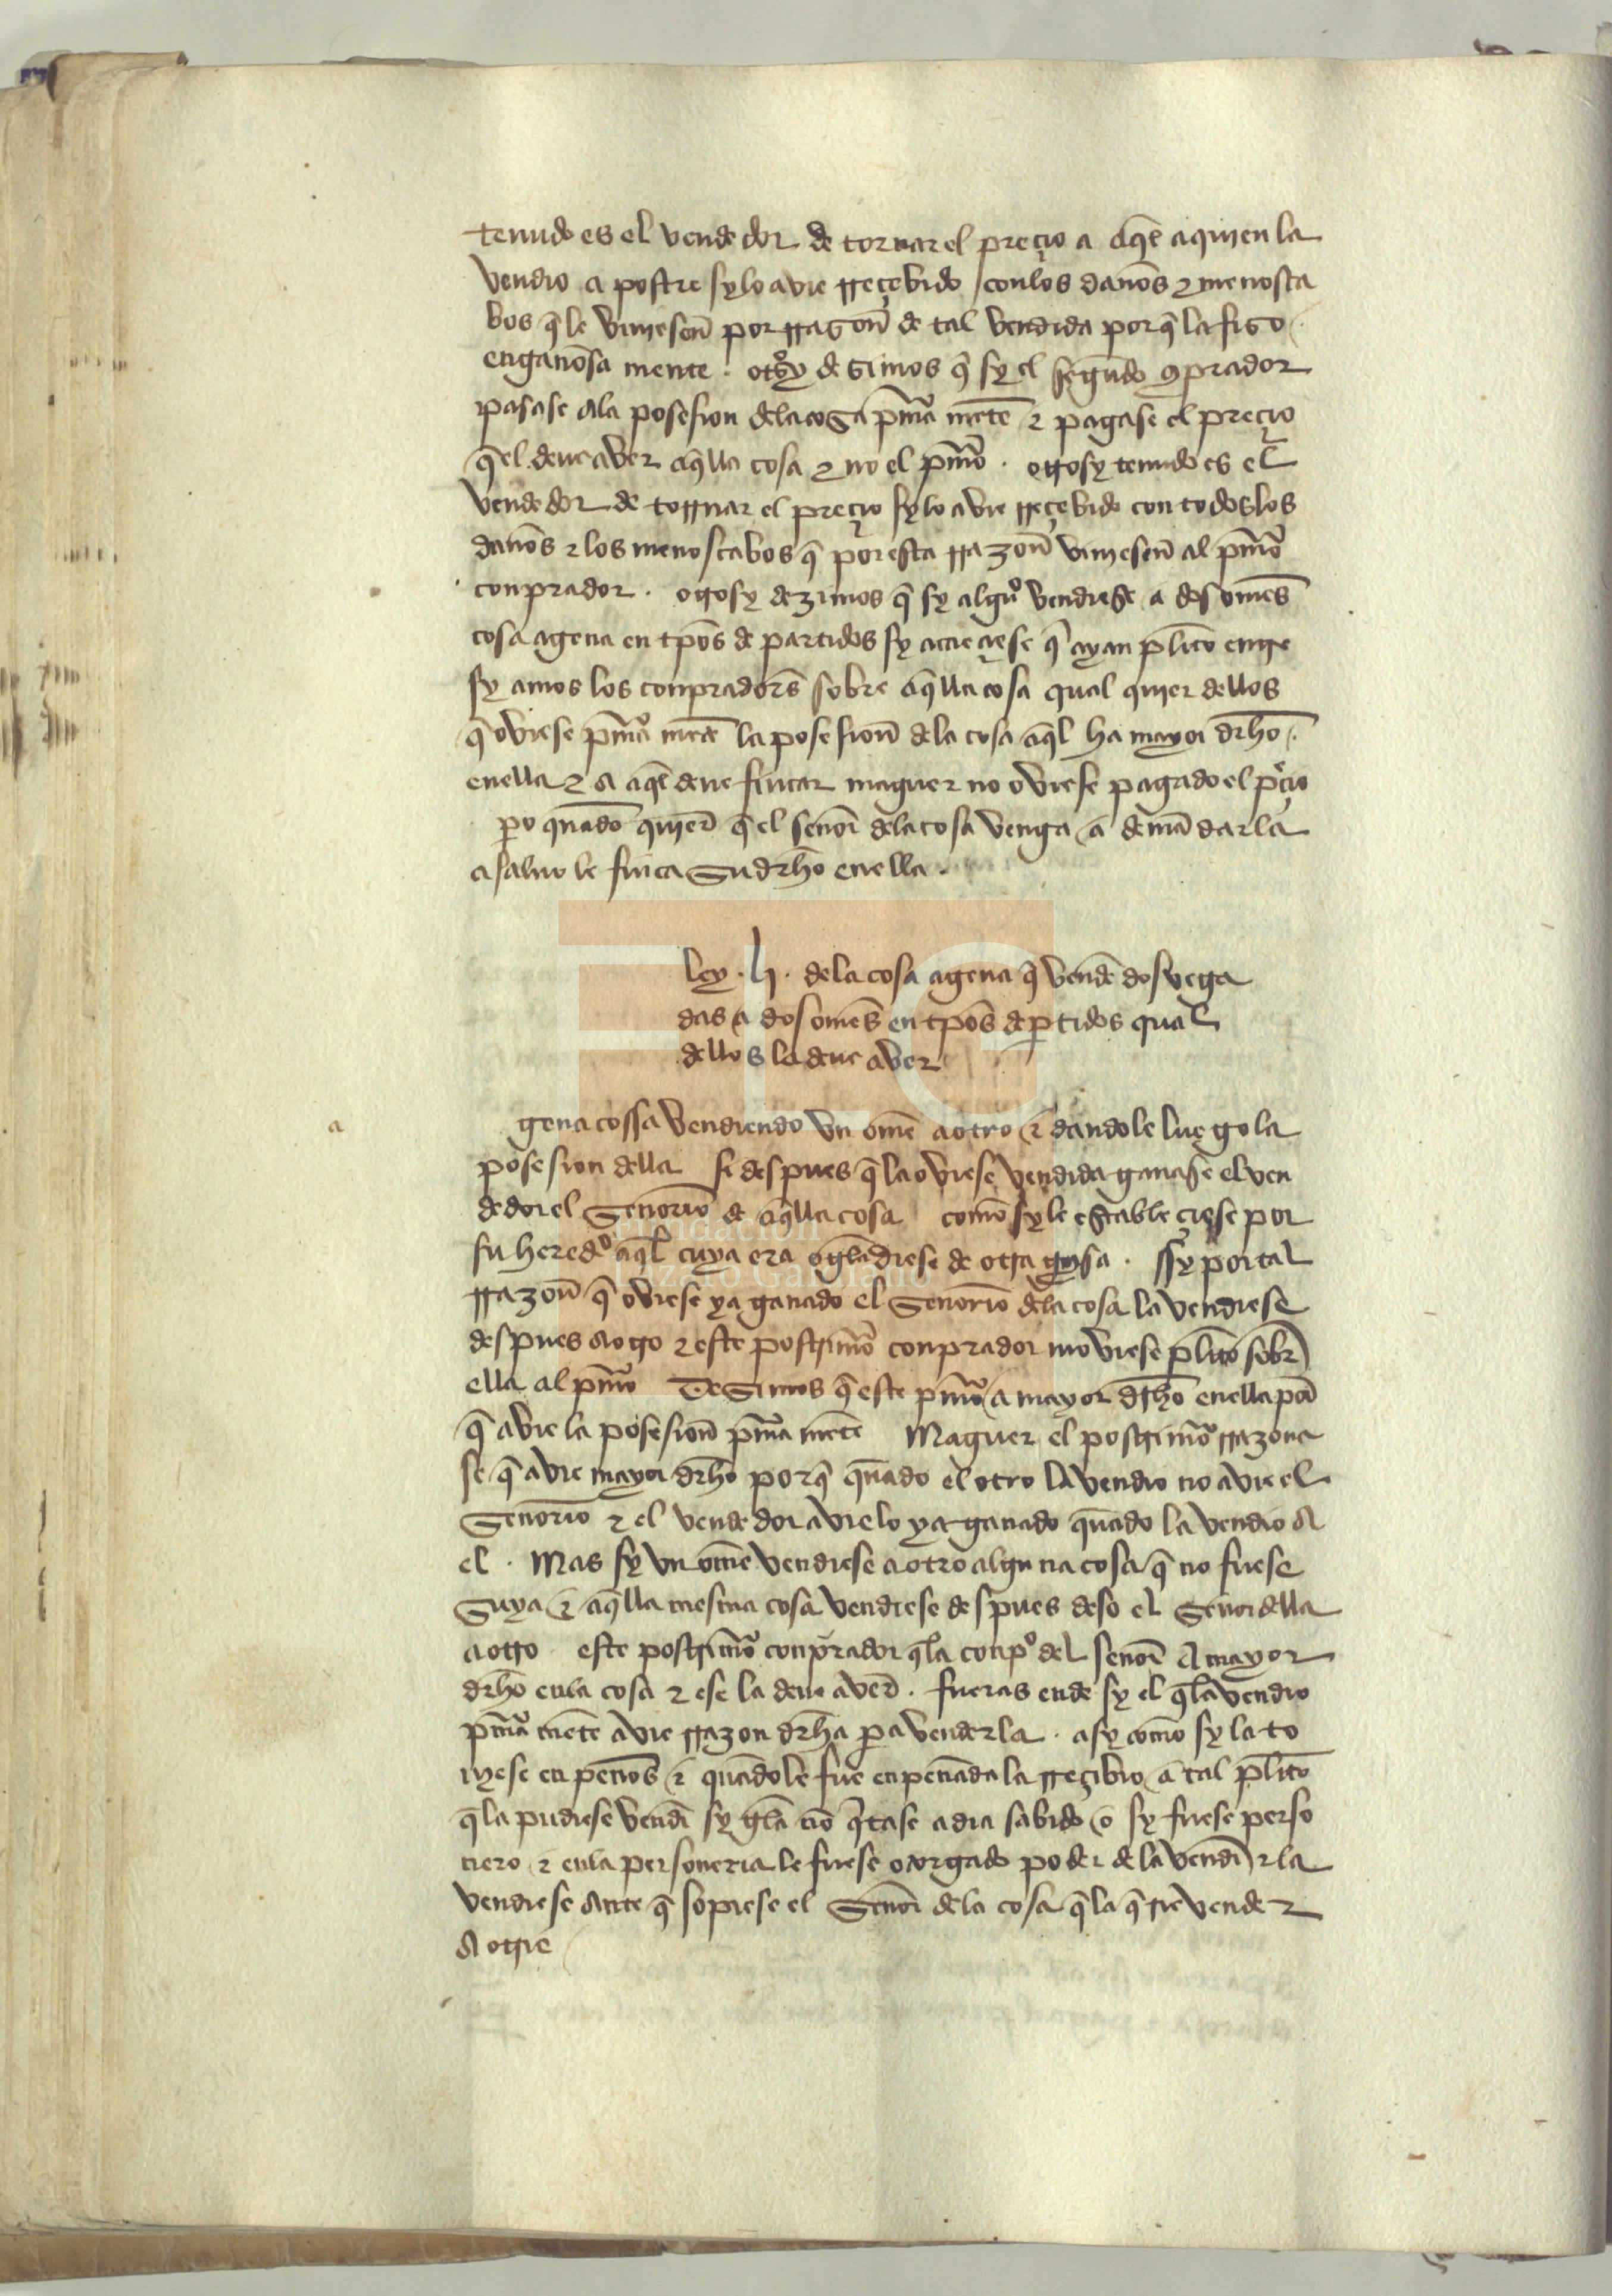 tenudo es el vendedor de tornar el preçio a aq̃l a quien la
vendio a postre sy lo avie rreçebido con los danos τ menosca
bos q̃ le viniesen̄ por rrason̄ de tal vendida porq̃ la fiso
enganosa mente . otͦsy desimos q̃ sy el segundo ꝯprador
pasase a la posesion dela cosa p̃mãmẽte τ pagase el preçio
q̃ el deue aver aq̃lla cosa τ no el p̃mͦo . otrosy tenudo es el
vendedor de torrnar el preçio sy lo avie rreçebido con todos los
danos τ los menoscabos q̃ por esta rrazon̄ viniesen̄ al p̃mͦo
conprador . otrosy dezimos q̃ sy algũo vendiese a dos omẽs
cosa agena en tp̃os departidos sy acaeçiese q̃ ayan pl̃ito entre
sy amos los conpradores̄ sobre aq̃lla cosa qual quier dellos
q̃ oviese p̃mãmẽte la posesion̄ dela cosa aq̃l ha mayor dr̃ho .
en ella τ a aq̃l deue fincar maguer no oviese pagado el p̃çio
p̃o quãdo quier̄ q̃ el senor̄ dela cosa venga a demãdarla
a saluo le finca su dr̃ho en ella .
Ley . li . dela cosa agena q̃ vendẽ dos vega
das a dos omẽs en tp̃os dep̃tidos qual
dellos la deue aver
a
gena cossa vendiendo vn omẽ a otro τ dandole luego la
posesion della si despues q̃ la oviese vendida ganase el ven
dedor el senorio de aq̃lla cosa como sy le estableçiese por
su heredͦo aq̃l cuya era o gela diese de otra guisa . ssy por tal
rrazon̄ q̃ oviese ya ganado el senorio dela cosa la vendiese
despues a otro τ este postrimͦo conprador moviese pl̃ito sobr̃
ella al p̃mͦo desimos q̃ este p̃mͦo a mayor dr̃ho en ella
q̃ avie la posesion̄ p̃mãmẽte Maguer el postrimͦo rrazona
se q̃ avie mayor dr̃ho porq̃ quãdo el otro la vendio no avie el
senorio τ el vendedor avielo ya ganado quãdo la vendio a
el . Mas sy vn omẽ vendiese a otro alguna cosa q̃ no fuese
suya τ aq̃lla mesma cosa vendiese despues deso el senor della
a otro este postrimͦo conprador q̃la conpͦo del senor̄ a mayor
dr̃ho en la cosa τ ese la deue aver̄ . fueras ende sy el q̃la vendio
p̃mãmẽte avie rrazon dr̃ha p̃a venderla . asy como sy la to
uyese en penos τ quãdo le fue enpenada la rreçibio a tal pl̃ito
q̃ la pudiese vend̃ sy gela no q̃tase a dia sabido o sy fuese perso
nero τ en la personeria le fuese otorgado poder de la vend̃ τ la
vendiese ante q̃ sopiese el senor̄ dela cosa q̃ la q̃rie vender
a otrie